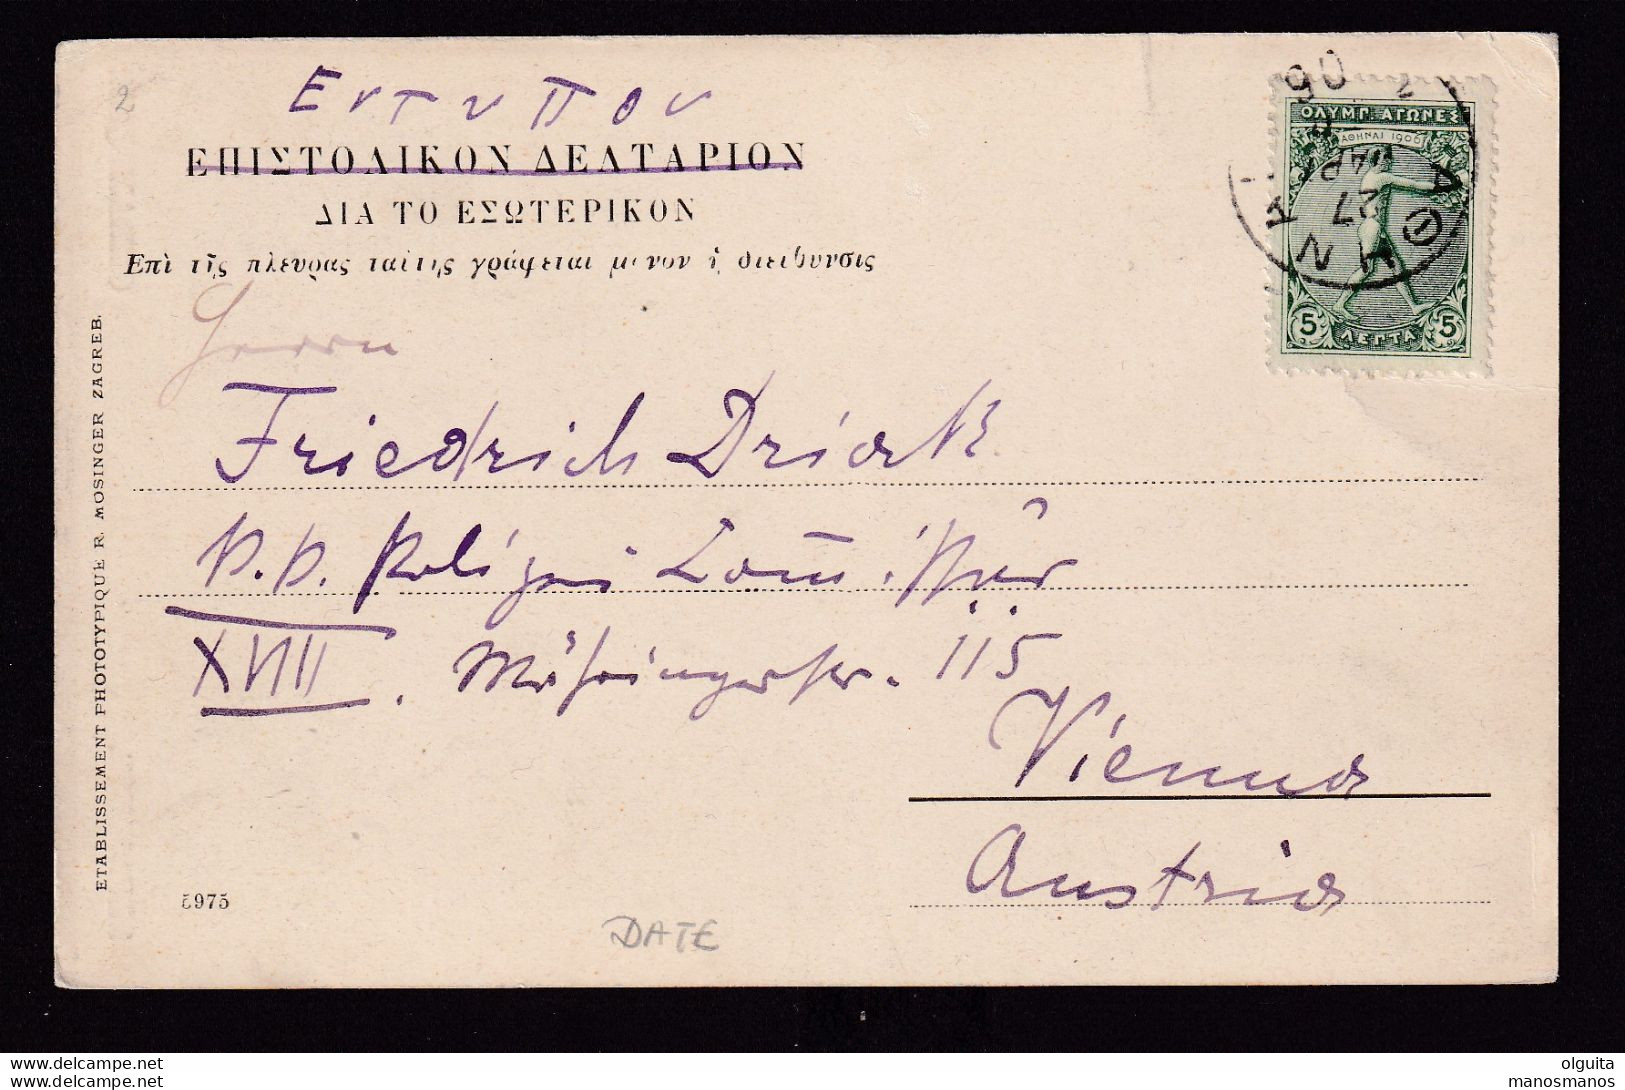 2
Εντυπον
ΕΠΙΣΤΟΛΙΚΟΝ ΔΕΛΤΑΡΙΟΝ
ΔΙΑ ΤΟ ΕΣΩΤΕΡΙΚΟΝ
Επὶ τῆς πλευρας ταύτης γράφεται μόνον ἡ διεύθυνσις
ΟΛΥΜΠ. ΑΓΩΝΕΣ
ΑΘΗΝΑΙ 1906
5 ΛΕΠΤΑ 5
ΑΘΗΝΑΙ
27 ΑΠΡ 06
Herrn
Friedrich
XVIII. 115
Vienna
Austria
ETABLISSEMENT PHOTOTYPIQUE R. MOSINGER ZAGREB.
5975
DATE
olguita
manosmanos